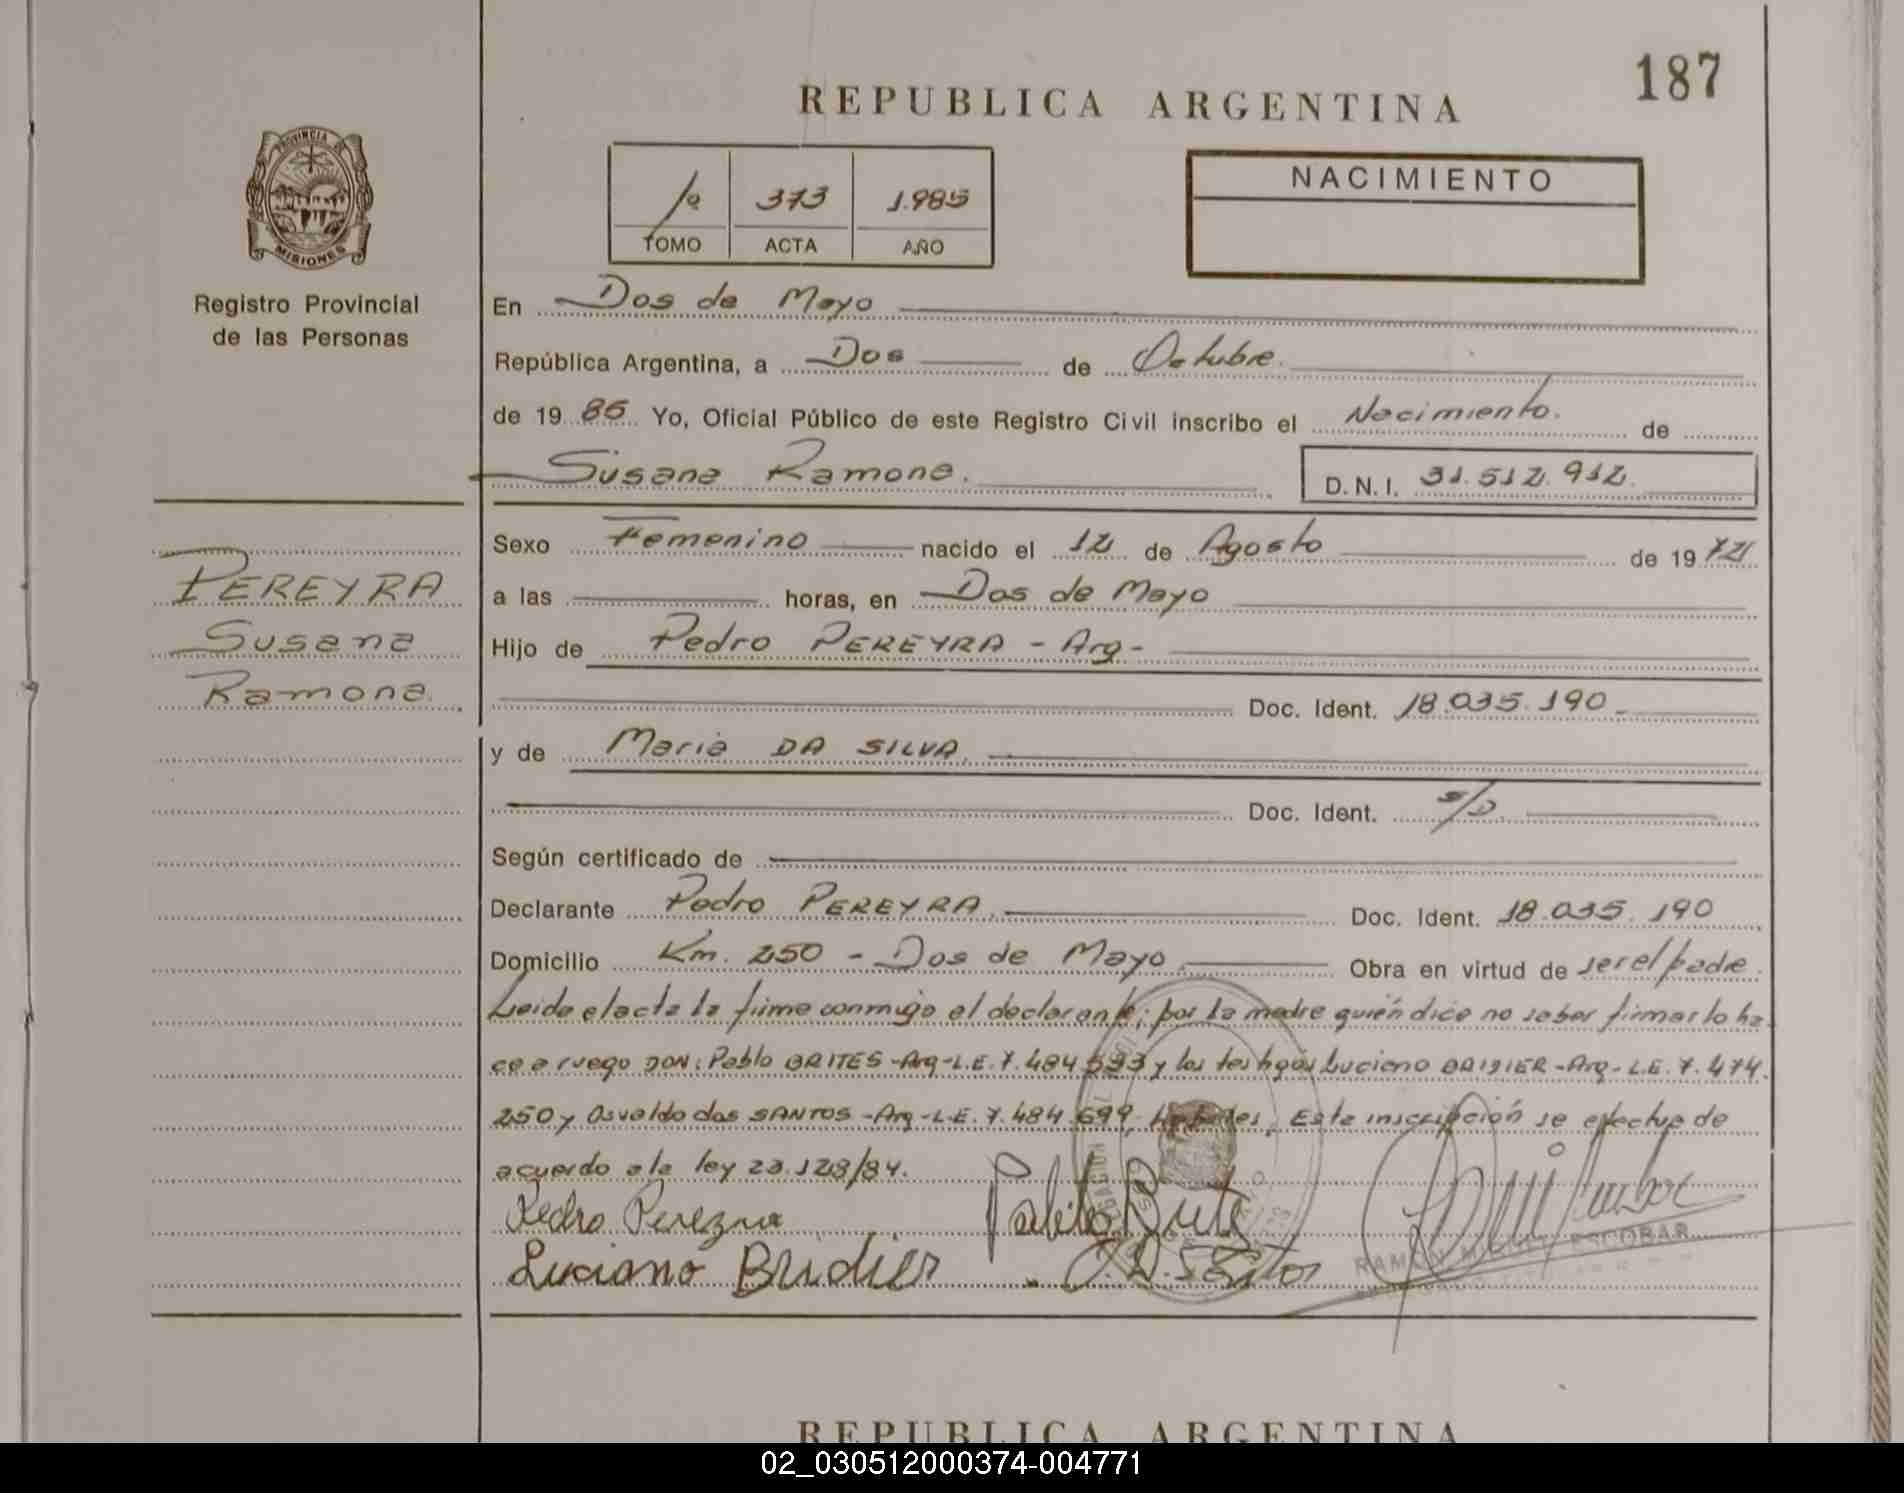 187
REPUBLICA ARGENTINA
PROVINCIA DE
MISIONES
Registro Provincial
de las Personas
1º 373 1.985
TOMO ACTA AÑO
NACIMIENTO
En Dos de Mayo
República Argentina, a Dos de Octubre.
de 19 85 Yo, Oficial Público de este Registro Civil inscribo el Nacimiento. de
Susana Ramona. D.N.I. 31.512.912.
Sexo Femenino nacido el 12 de Agosto de 19 72
a las horas, en Dos de Mayo
Hijo de Pedro PEREYRA - Arg-
Doc. Ident. 18.035.190
y de Maria DA SILVA.
Doc. Ident. S/D.
Según certificado de
Declarante Pedro PEREYRA. Doc. Ident. 18.035.190
Domicilio Km. 250 - Dos de Mayo. Obra en virtud de ser el padre.
Leida el acta la firma conmigo el declarante; por la madre quién dice no saber firmar lo ha-
ce a ruego DON: Pablo BRITES -Arg-L.E.7.484.593 y los testigos Luciano BRIDIER -Arg- L.E. 7.474.
250 y Osvaldo dos SANTOS -Arg-L.E. 7.484.699, habiles. Esta inscripción se efectua de
acuerdo a la ley 23.128/84.
PEREYRA
Susana
Ramona.
Pedro Pereyra
Luciano Bridier
RAMON MIGUEL ESCOBAR
REPUBLICA ARGENTINA
02_030512000374-004771